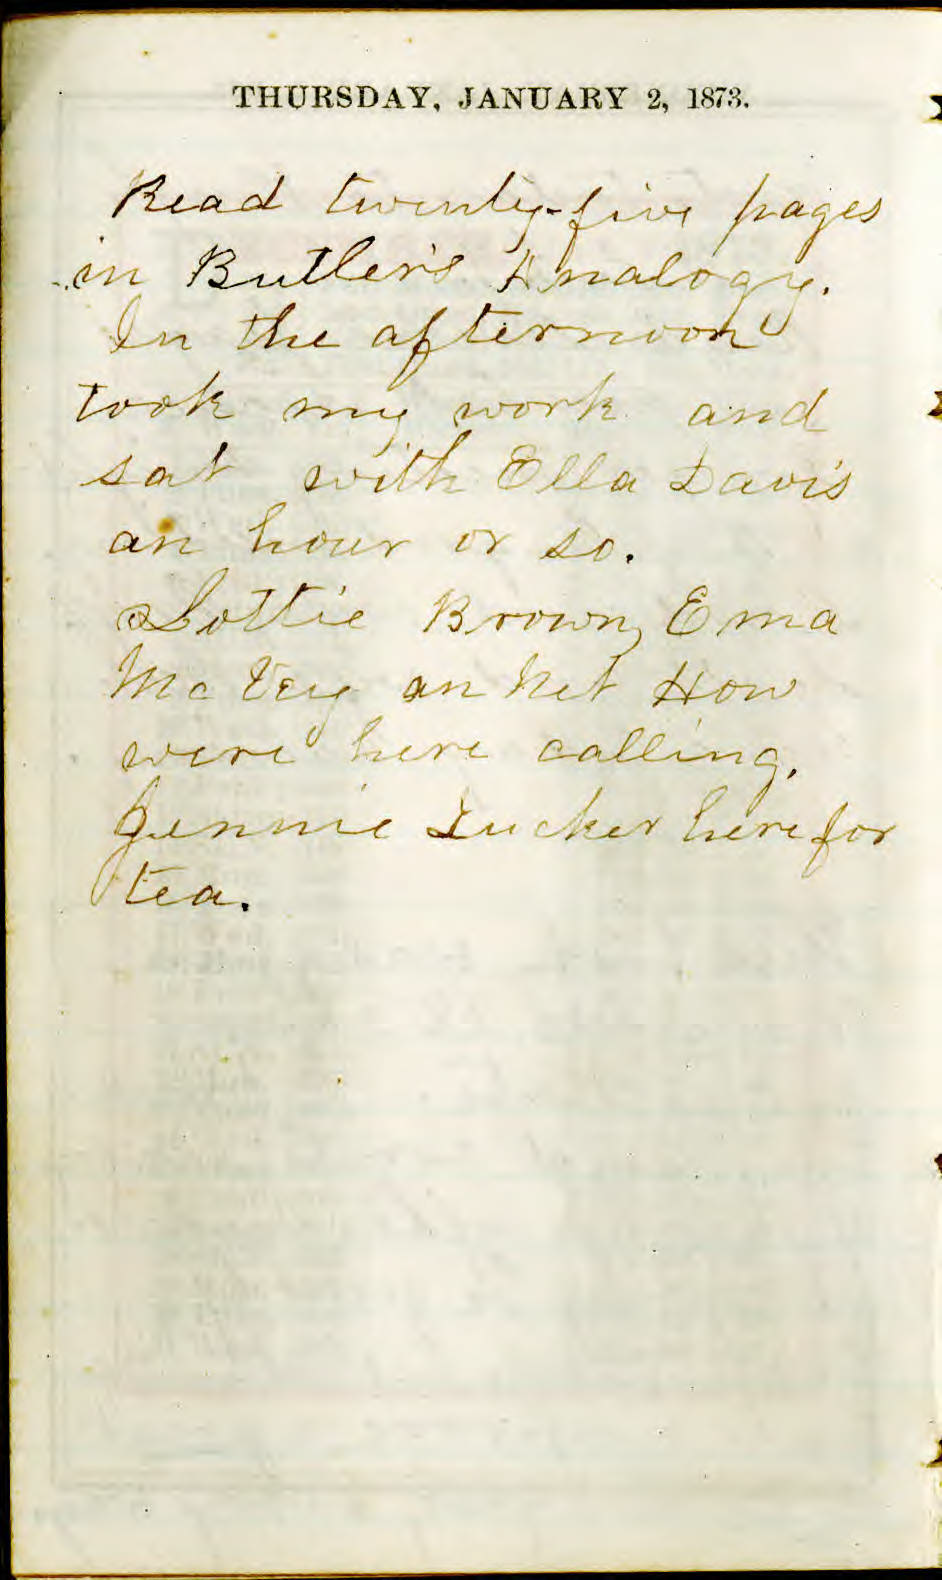 THURSDAY, JANUARY 2, 1873.
Read twenty-five pages
in Butler's Analogy.
In the afternoon
took my work and
sat with Ella Davis
an hour or so.
Lottie Brown, Ema
McVey an Net How
were here calling.
Jennie Tucker here for
tea.